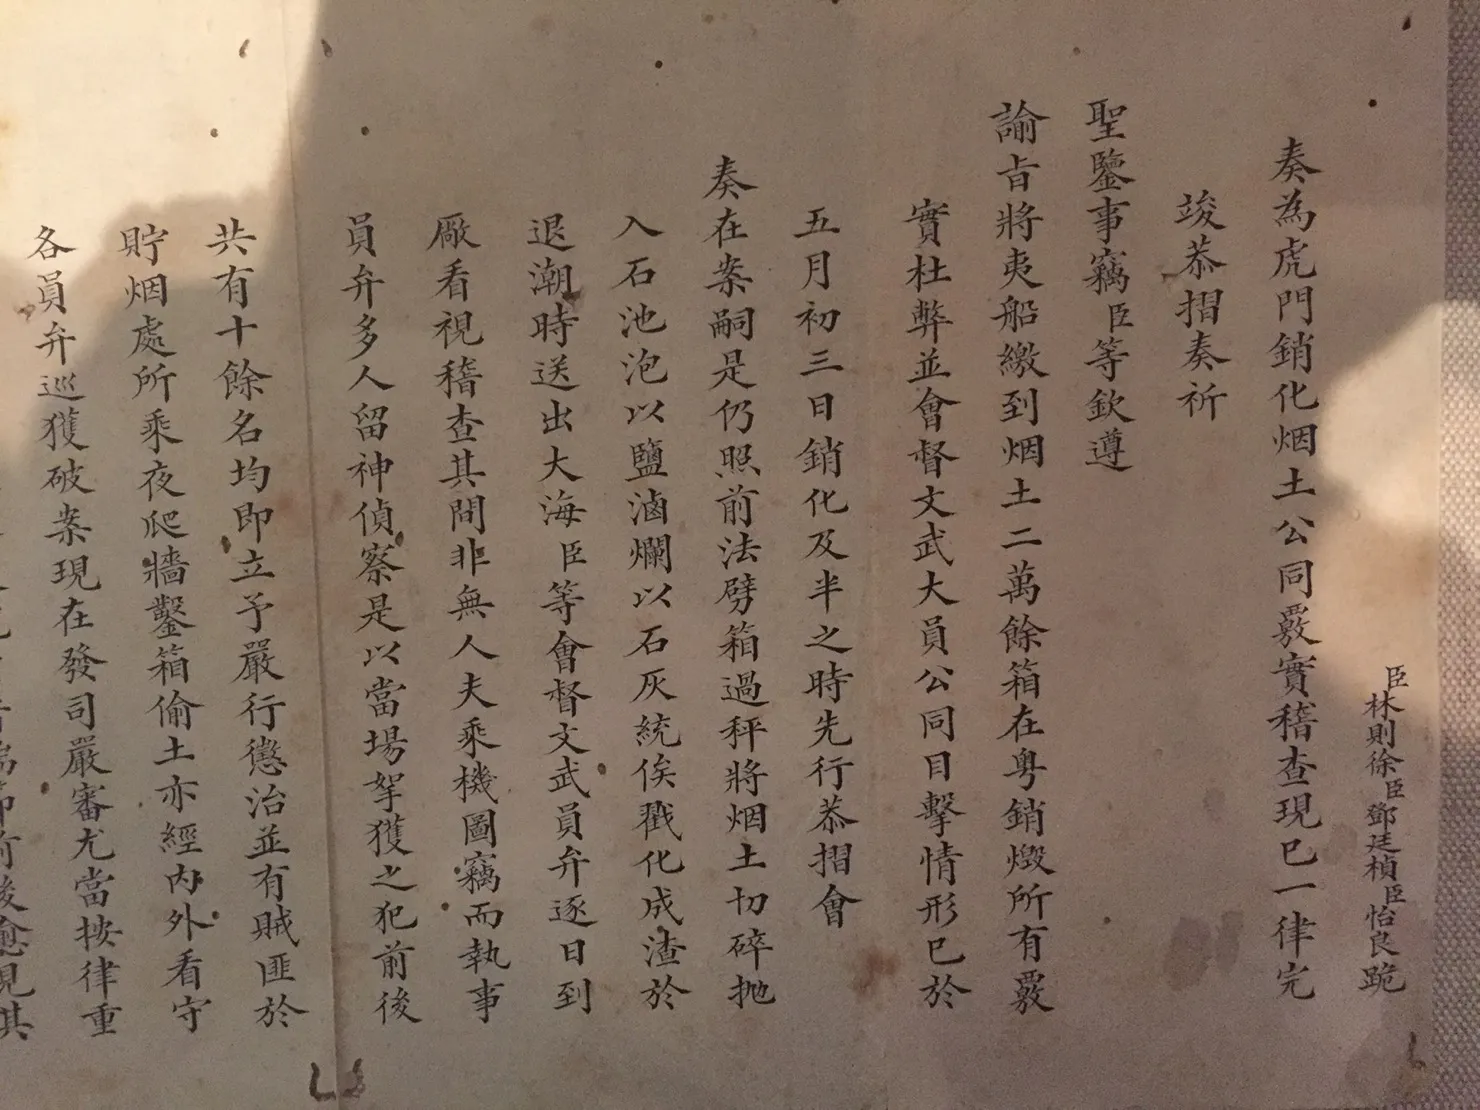 臣林則徐臣鄧廷楨臣怡良跪
奏為虎門銷化烟土公同覈實稽查現已一律完
竣恭摺奏祈
聖鑒事竊臣等欽遵
諭旨將夷船繳到烟土二萬餘箱在粵銷燬所有覈
實杜弊並會督文武大員公同目擊情形已於
五月初三日銷化及半之時先行恭摺會
奏在案嗣是仍照前法劈箱過秤將烟土切碎抛
入石池泡以鹽滷爛以石灰統俟戳化成渣於
退潮時送出大海臣等會督文武員弁逐日到
廠看視稽查其間非無人夫乘機圖竊而執事
員弁多人留神偵察是以當場拏獲之犯前後
共有十餘名均即立予嚴行懲治並有賊匪於
貯烟處所乘夜爬牆鑿箱偷土亦經內外看守
各員弁巡獲破案現在發司嚴審尤當按律重
前後愈見其